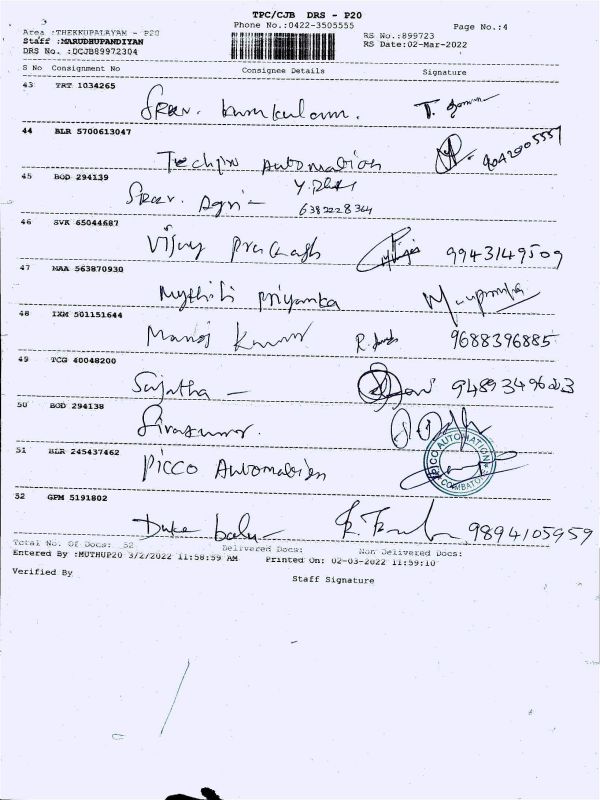 TPC/CJB DRS - P20
Phone No.:0422-3505555
Page No.:4
3
Area :THEKKUPALAYAM - P20
Staff :MARUDHUPANDIYAN
DRS No. :DCJB89972304
RS No.:899723
RS Date:02-Mar-2022
S No Consignment No Consignee Details Signature
43 TRT 1034265
44 BLR 5700613047
Techjin Automation
45 BOD 294139
Agri
46 SVK 65044687
Vijay Prakash 9943149509
47 MAA 563870930
Mythili Priyanka
48 IXM 501151644
Manoj Kumar 9688396885
49 TCG 40048200
Sujatha
50 BOD 294138
Sivakumar.
51 BLR 245437462
PICCO Automation
PICCO AUTOMATION
COIMBATORE
52 GPM 5191802
Duke balu 9894105959
Total No. Of Docs: 52 Delivered Docs: Non Delivered Docs:
Entered By :MUTHUP20 3/2/2022 11:58:59 AM Printed On: 02-03-2022 11:59:10
Verified By
Staff Signature